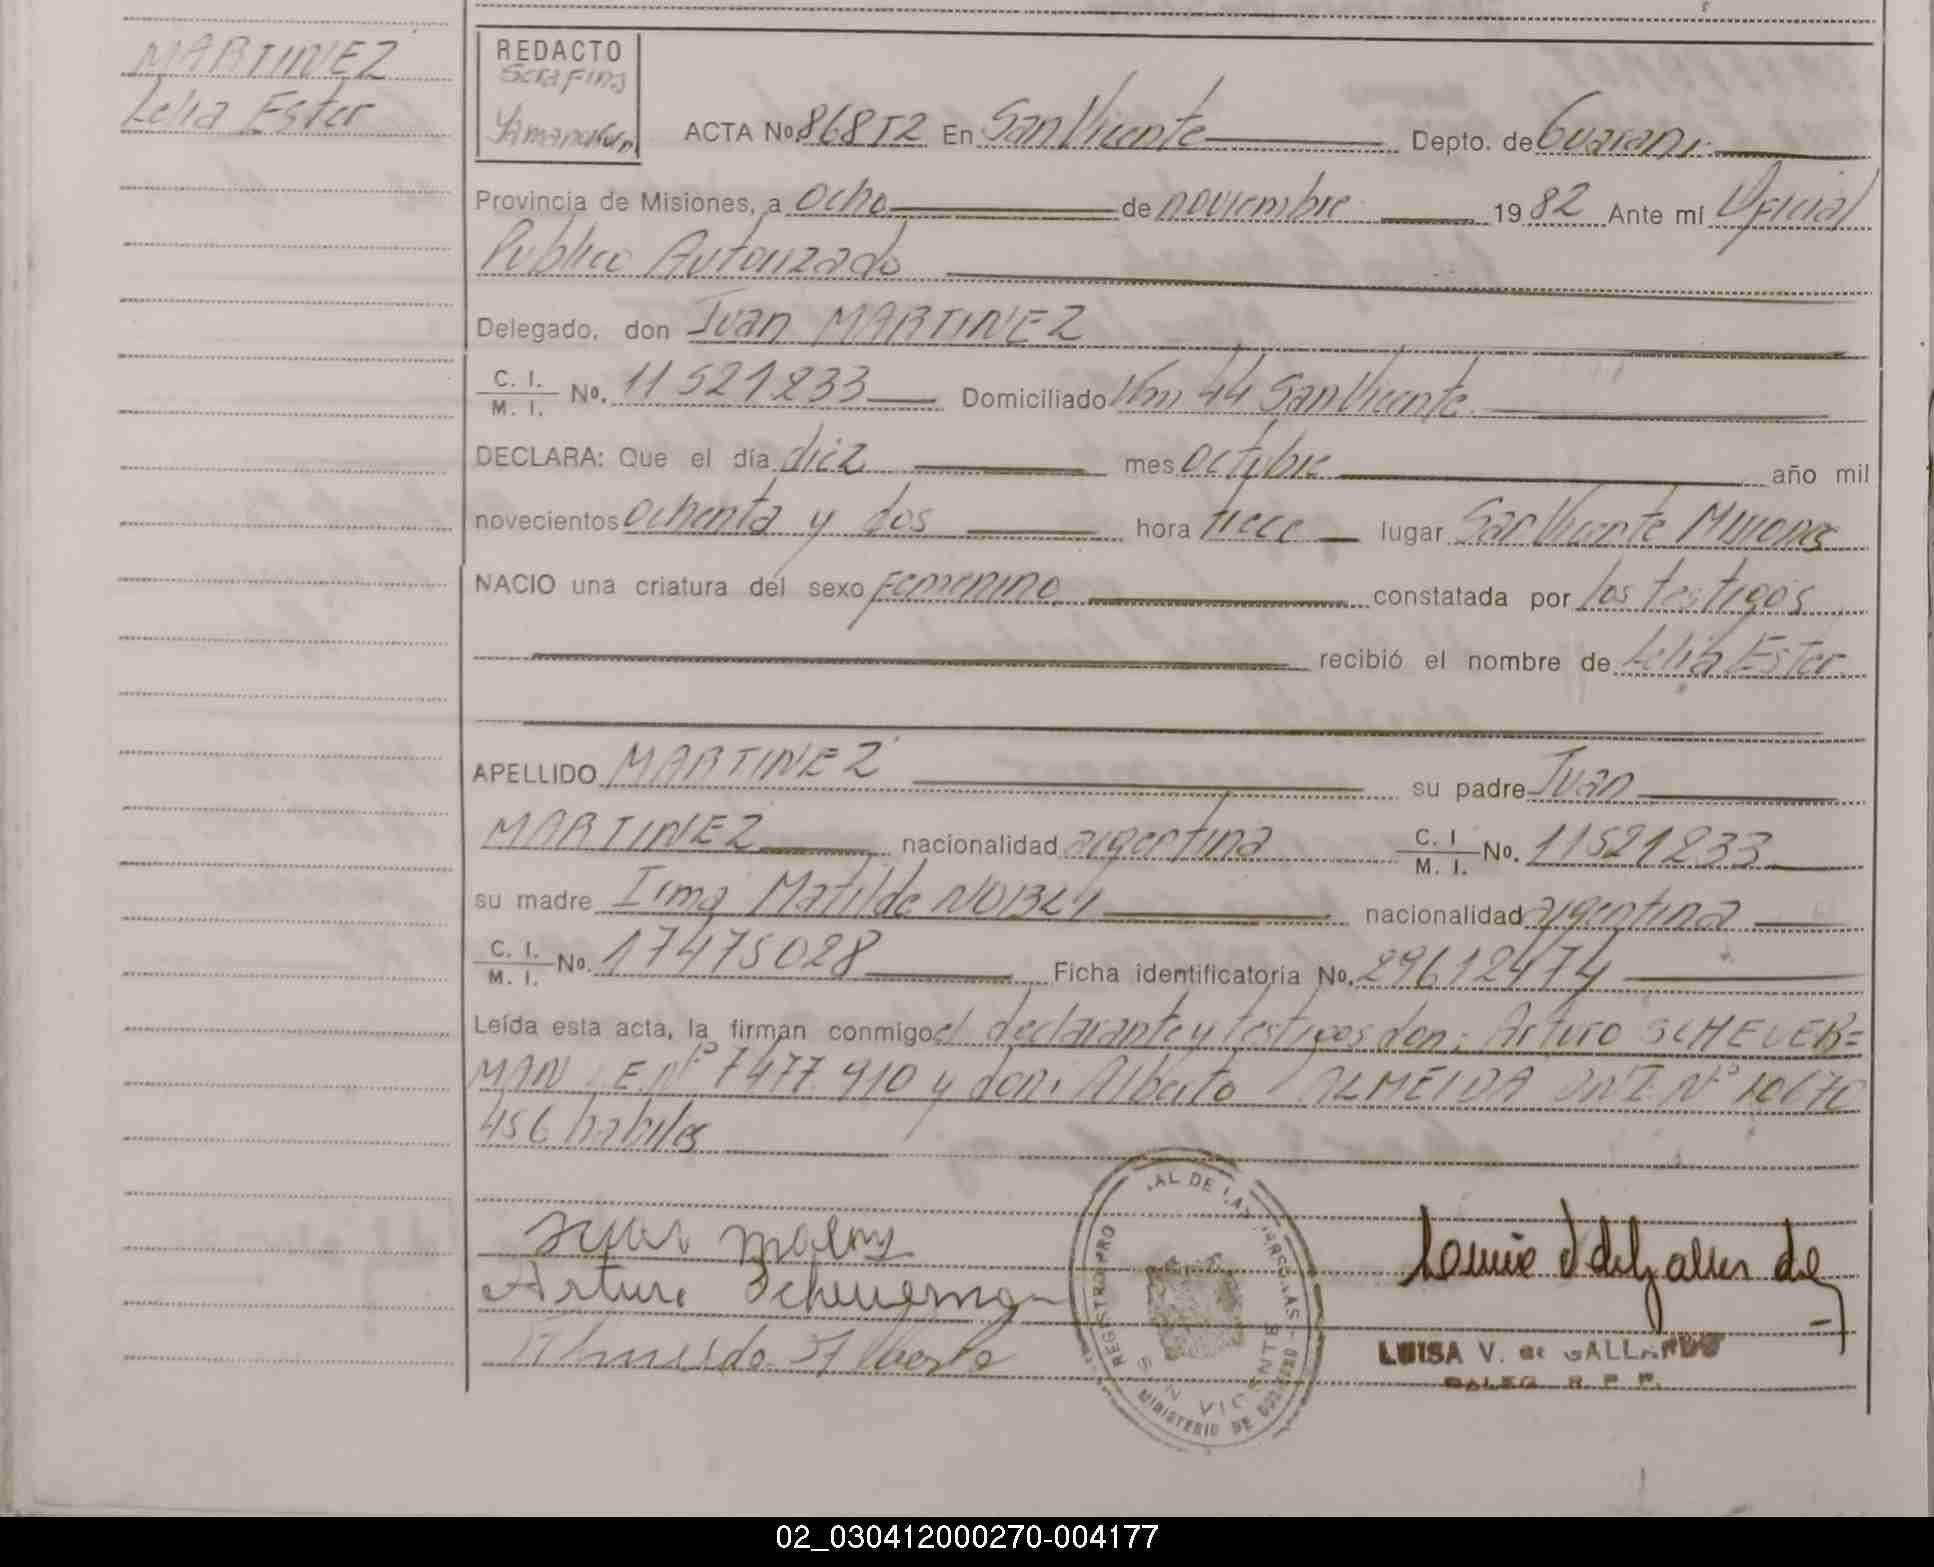 MARTINEZ
Lelia Ester
REDACTO
Serafina
ACTA No. 868 T2 En San Vicente Depto. de Guarani
Provincia de Misiones, a ocho de noviembre 1982 Ante mí Oficial
Publico Autorizado
Delegado, don Juan MARTINEZ
C. I. / M. I. No. 11521233 Domiciliado Km 44 San Vicente
DECLARA: Que el día diez mes octubre año mil
novecientos ochenta y dos hora trece lugar San Vicente Misiones
NACIO una criatura del sexo Femenino constatada por los testigos
recibió el nombre de Lelia Ester
APELLIDO MARTINEZ su padre Juan
MARTINEZ nacionalidad argentina C. I / M. I. No. 11521233
su madre Irma Matilde nacionalidad argentina
C. I. / M. I. No. 17475028 Ficha identificatoria No. 29612474
Leída esta acta, la firman conmigo el declarante y testigos don: Arturo SCHEVER=
MAN L.E. Nº 7477.910 y don: Alberto ALMEIDA DNI. Nº 10670
456 habiles
Arturo Scheuerman
Almeida Alberto
REGISTRO PRO AL DE LAS PERSONAS - MINISTERIO DE GOBIERNO
SAN VICENTE
LUISA V. de GALLARDO
DALEG. R. P. P.
02_030412000270-004177